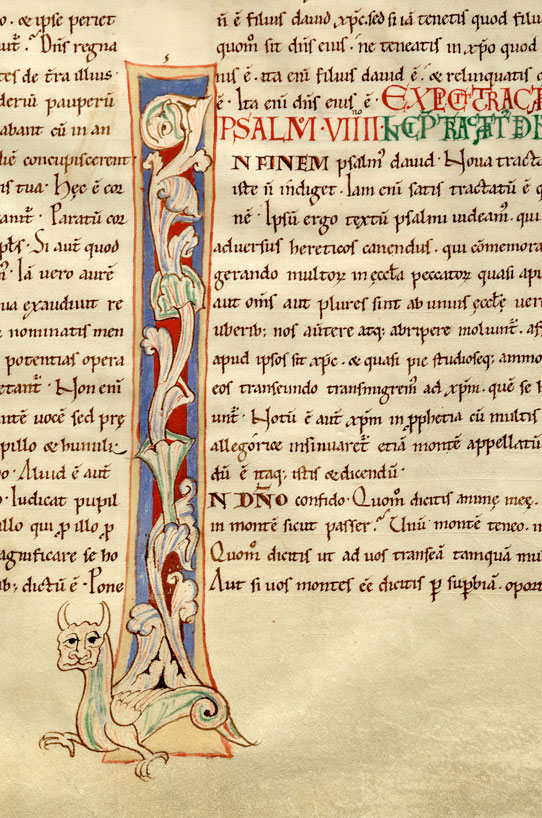 o. & ipse periet
aut̄. Dn̄s regna
tes de t̄ra illius.
deriū pauperū
abant cū in an
concupiscerent
is tua. Hęc ē cor
Paratū cor
Si aut̄ quod
Iā vero aurē
ua exaudiuit re
nominatis men
potentias opera
Non eni
ntē vocē sed prę
pillo & humili
o. Aliud ē aut̄
o. Iudicat pupil
illo qui ꝑ illo ꝑ
agnificare se ho
ib; dictū ē. Pone
n̄ ē filius dauid xp̄c. sed si iā tenetis quod filiu
quom̄ sit dn̄s eius. ne teneatis in xp̄o quod
nis ē. ita eni filius dauid ē. & relinquatis
ē. Ita eni dn̄s eius ē. EXPLIC̄ TRACT
PSALM̄. VIIII. INCIP̄ TRACTAT̄ D
IN FINEM psalm' dauid. Noua tracta
iste n̄ indiget. Iam eni satis tractatū ē q
nē. Ipsū ergo textū psalmi uideam'. qui
aduersus hereticos canendus. qui cōmemora
gerando multoꝝ in ęccl̄a peccatoꝝ quasi apu
aut om̄s aut plures sint ab unius ęccl̄ę ver
uberib; nos auertere atq; abripere moliunt̄. aff
apud ipsos sit xp̄c. & quasi pie studioseq; ammo
eos transeundo transmigrem' ad xp̄m. quē se h
unt̄. Notū ē aut̄ xp̄m in ꝓphetia cū multis
allegorice insinuaret̄ etiā montē appellatū
dū ē itaq; istis & dicendū.
IN DN̄O confido. Quom̄ dicitis animę meę.
in montē sicut passer. Unū montē teneo. in
Quom̄ dicitis ut ad uos transeā tamquā mul
Aut si uos montes ēe dicitis ꝑ supbiā. oport